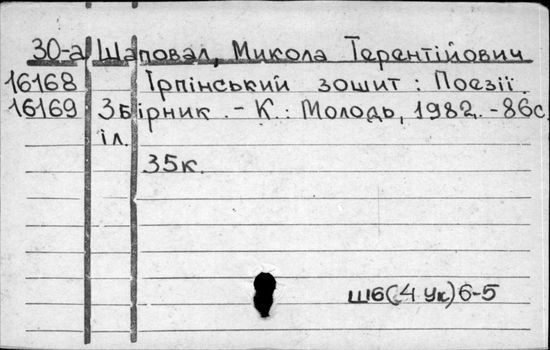 30-а Шаповал, Микола Терентійович
16168 Ірпінський зошит: Поезії.
16169 Збірник. - К.: Молодь, 1982. - 86с.
іл.
35к.
Ш6(4Ук)6-5